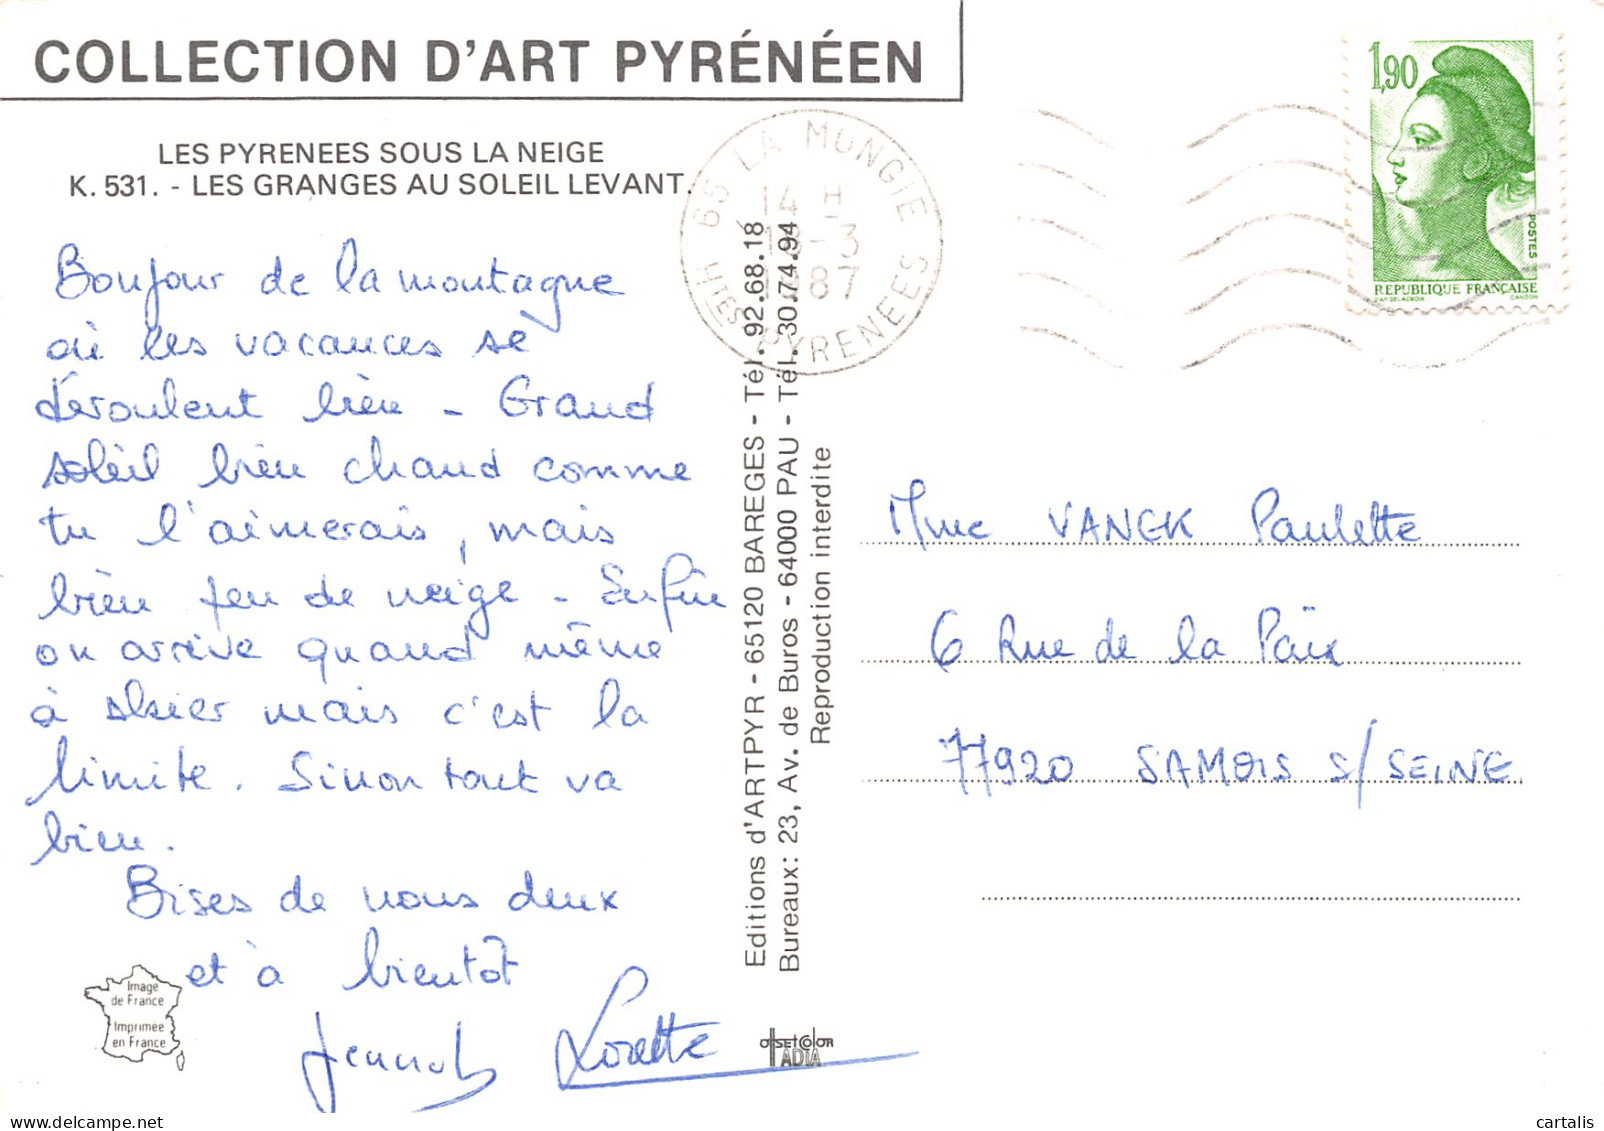 COLLECTION D'ART PYRÉNÉEN
LES PYRENEES SOUS LA NEIGE
K. 531. - LES GRANGES AU SOLEIL LEVANT.
Bonjour de la montagne
où les vacances se
déroulent bien - Grand
soleil bien chaud comme
tu l'aimerais, mais
bien peu de neige - Enfin
on arrive quand même
à skier mais c'est la
limite. Sinon tout va
bien.
Bises de nous deux
et à bientôt
Lorette
Image
de France
Imprimée
en France
Editions d'ARTPYR - 65120 BAREGES - Tél. 92.68.18
Bureaux: 23, Av. de Buros - 64000 PAU - Tél. 30.74.94
Reproduction interdite
OffsetColor
ADIA
65 LA MONGIE
14 H
-3
1987
HTES PYRENEES
1,90
POSTES
REPUBLIQUE FRANÇAISE
D'AP. DELACROIX GANDON
Mme VANCK Paulette
6 Rue de la Paix
77920 SAMOIS S/ SEINE
cartalis
delcampe.net